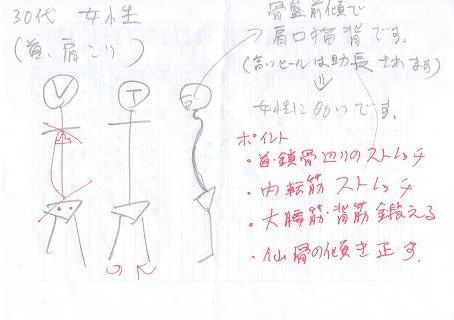 30代 女性
(首、肩こり)
骨盤前傾で
肩口猫背です。
(高いヒールは助長されます)
女性に多いです。
ポイント
・首・鎖骨辺りのストレッチ
・内転筋 ストレッチ
・大腰筋・背筋鍛える
・仙骨の傾き正す.